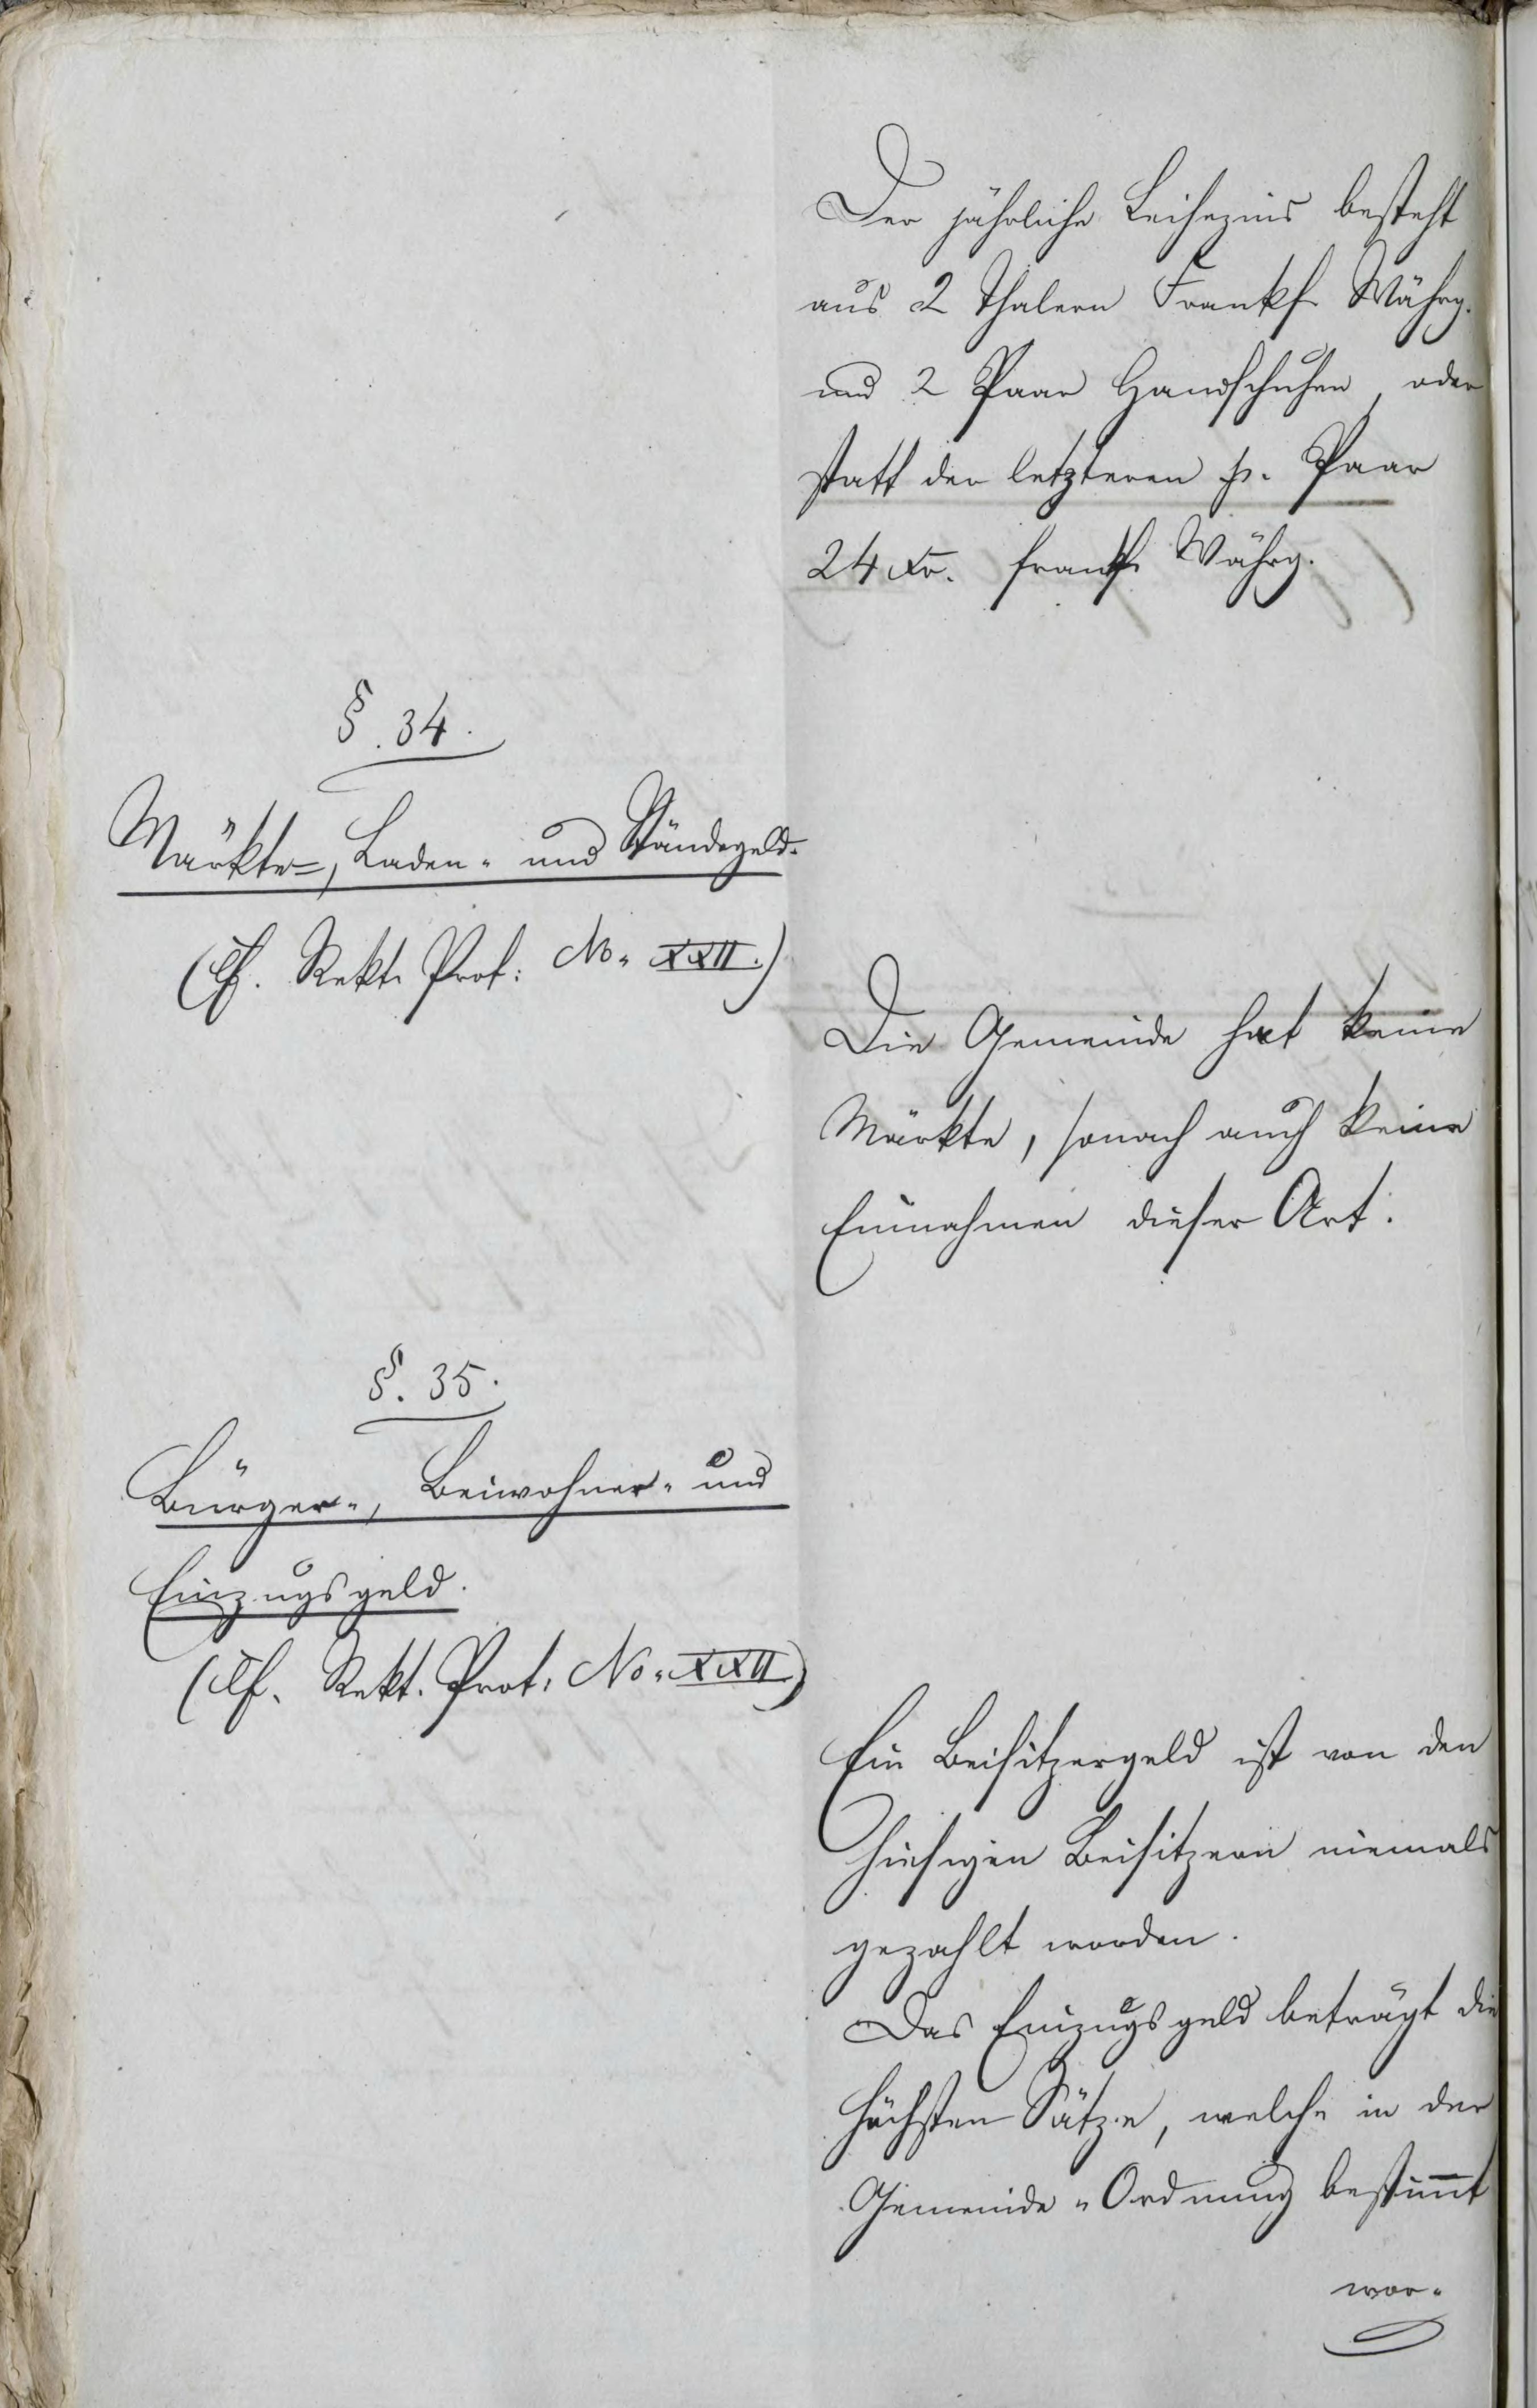 Der jährliche Leihezins besteht
aus 2 Thalern Frankf. Währg.
und 2 Paar Handschuhen, oder
statt der letzteren p. Paar
24 Xr. frankf. Währg.
§. 34.
Märkte-, Laden- und Ständegeld.
(Cf. Rekt. Prot: No. XXII.)
Die Gemeinde hat keine
Märkte, sonach auch keine
Einnahmen dieser Art.
§. 35.
Bürger-, Beiwohner- und
Einzugsgeld.
(Cf. Rekt. Prot. No. XXII)
Ein Beisitzergeld ist von den
hiesigen Beisitzern niemals
gezahlt worden.
Das Einzugsgeld beträgt die
höchsten Sätze, welche in der
Gemeinde-Ordnung bestimmt
wor-